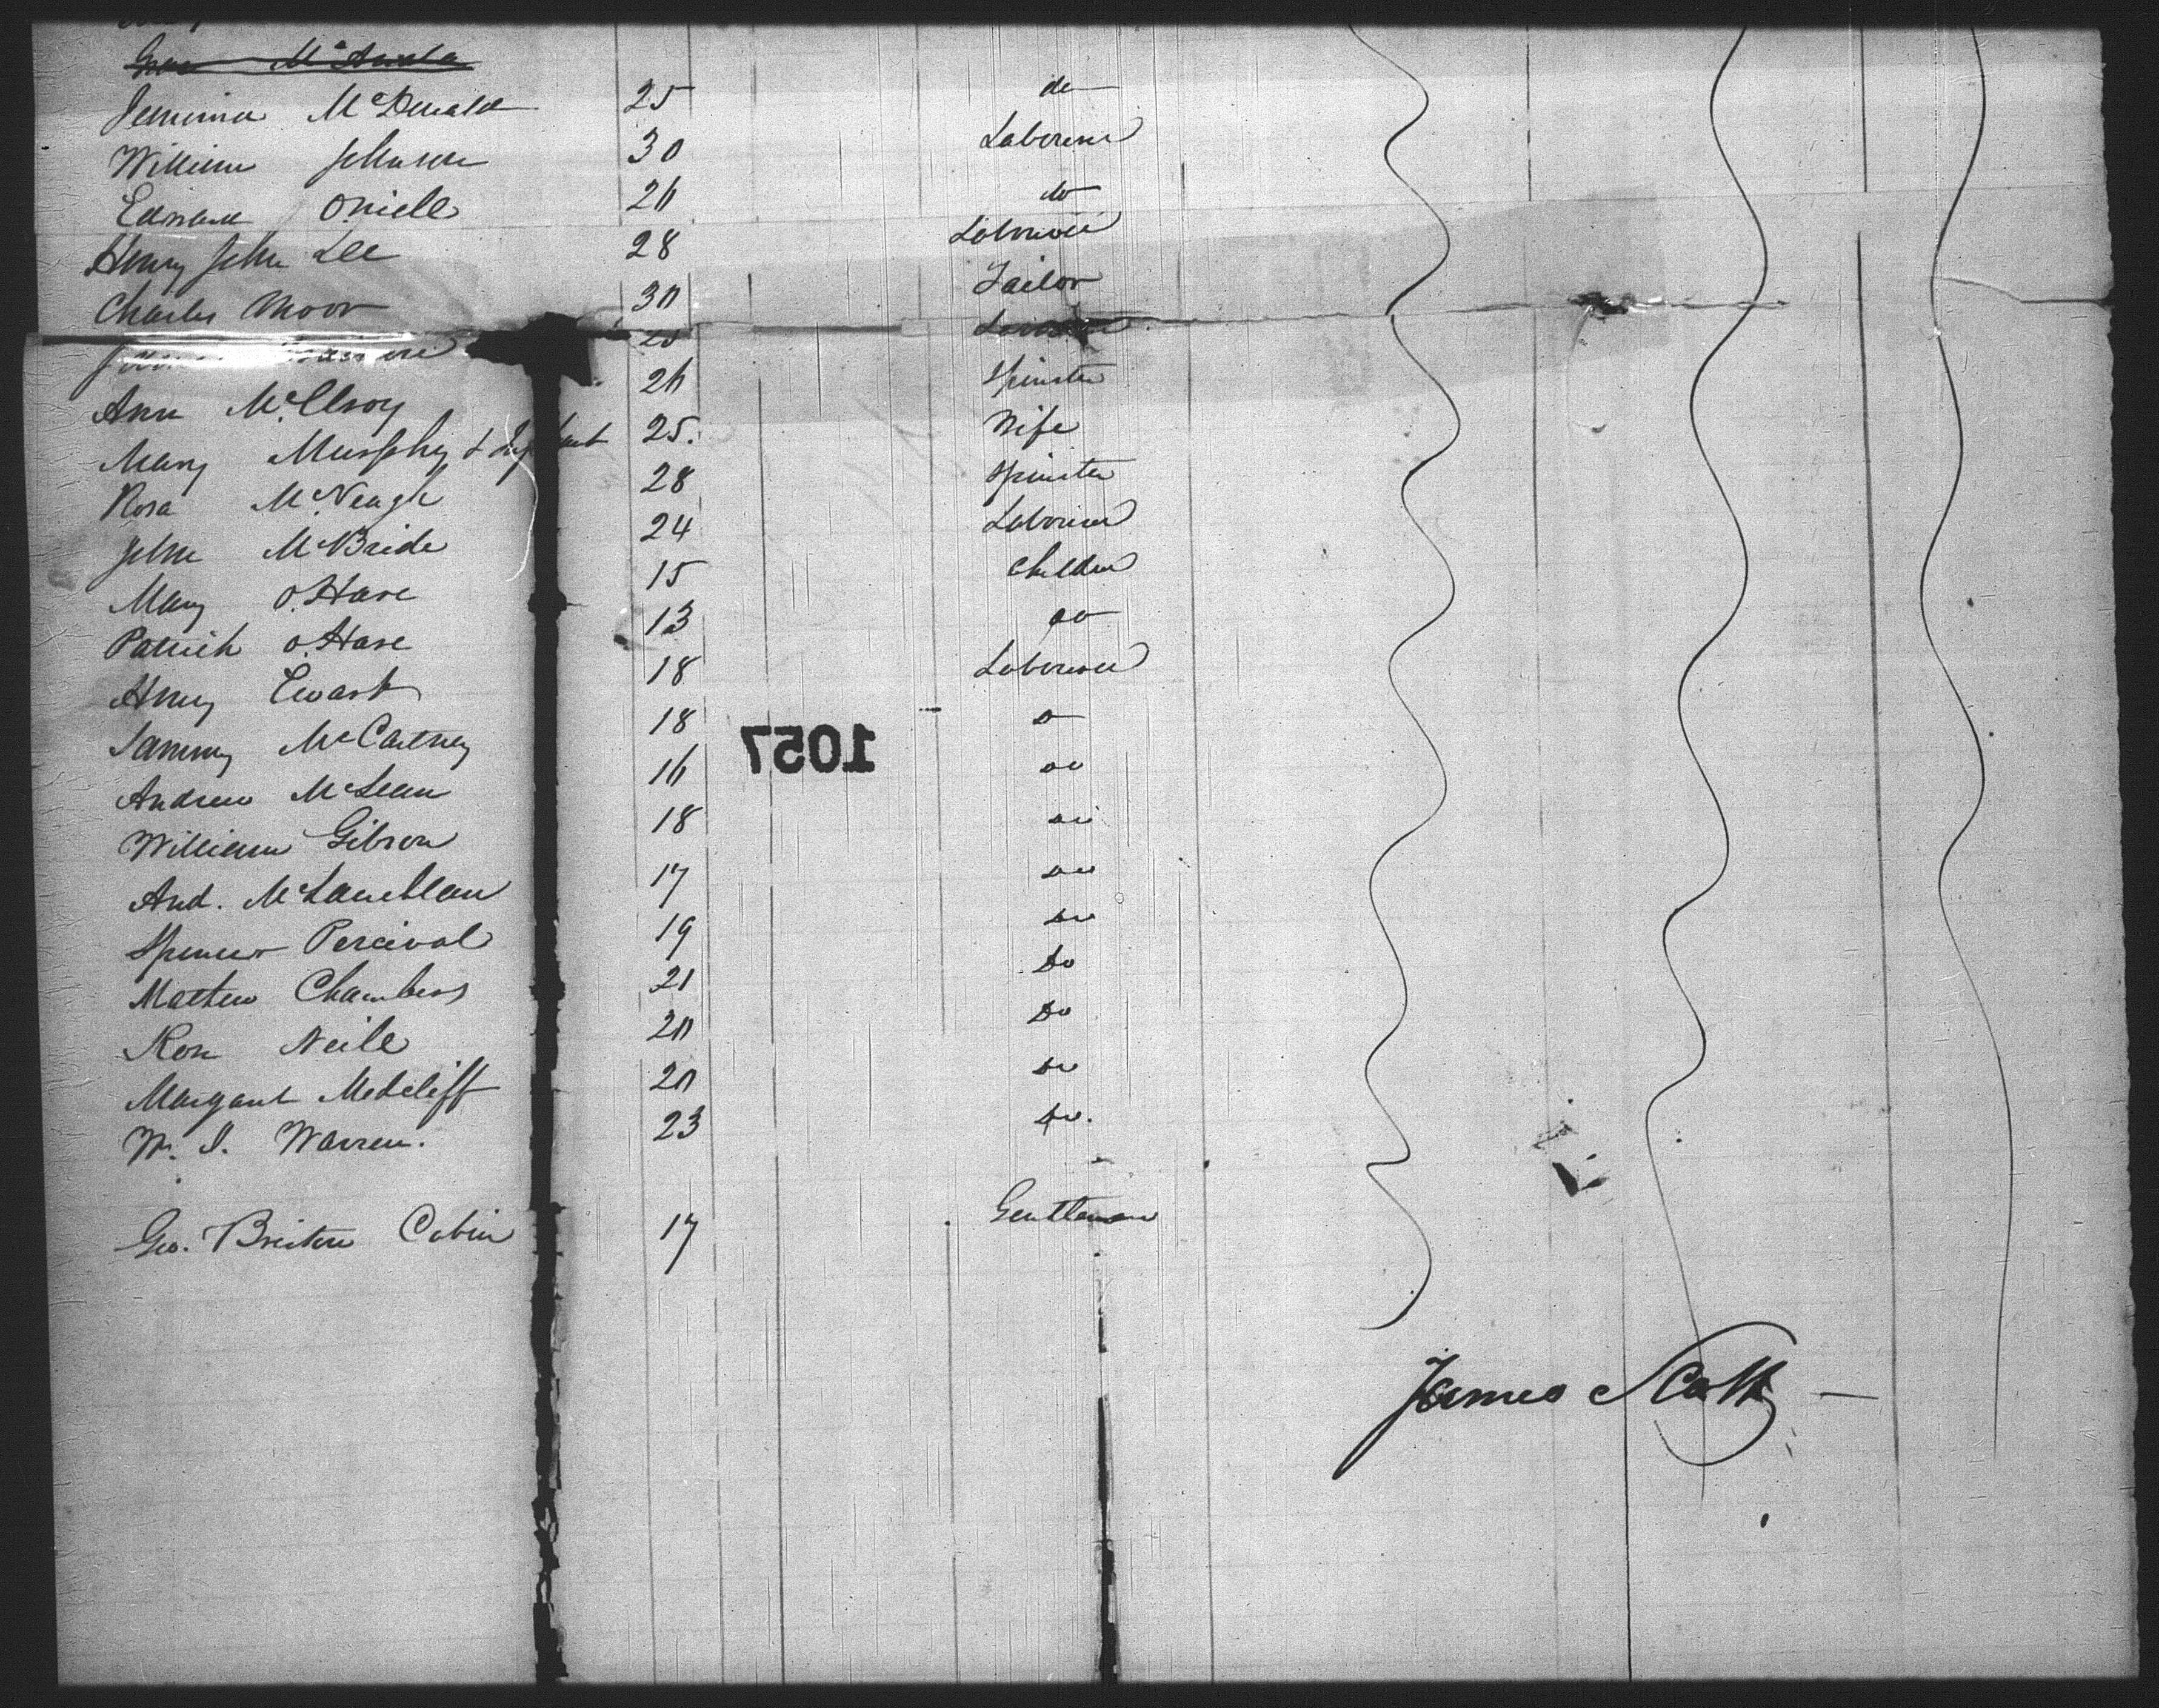 Jemima McDonald 25 do
William Johnson 30 Labourer
Edward O.niell 20 do
Henry John Lee 28 Labourer
Charles Moor 30 Tailor
20
Ann McElroy 20 Spinster
Mary Murphy & Infant 25. Wife
Rosa McVeagh 28 Spinster
John McBride 24 Labourer
Mary O.Hare 15 Children
Patrick O.Hare 13 do
Henry Ewart 18 Labourer
Sammy McCartney 18 do
1057
Andrew McLean 16 do
William Gibson 18 do
And. 17 do
Spencer Percival 19 do
Mathew Chambers 21 Do
Neile 20 Do
Margaret Medcliff 20 do
W. J. Warren. 23 do.
Geo. Breiton Cabin 17 Gentleman
James Scott